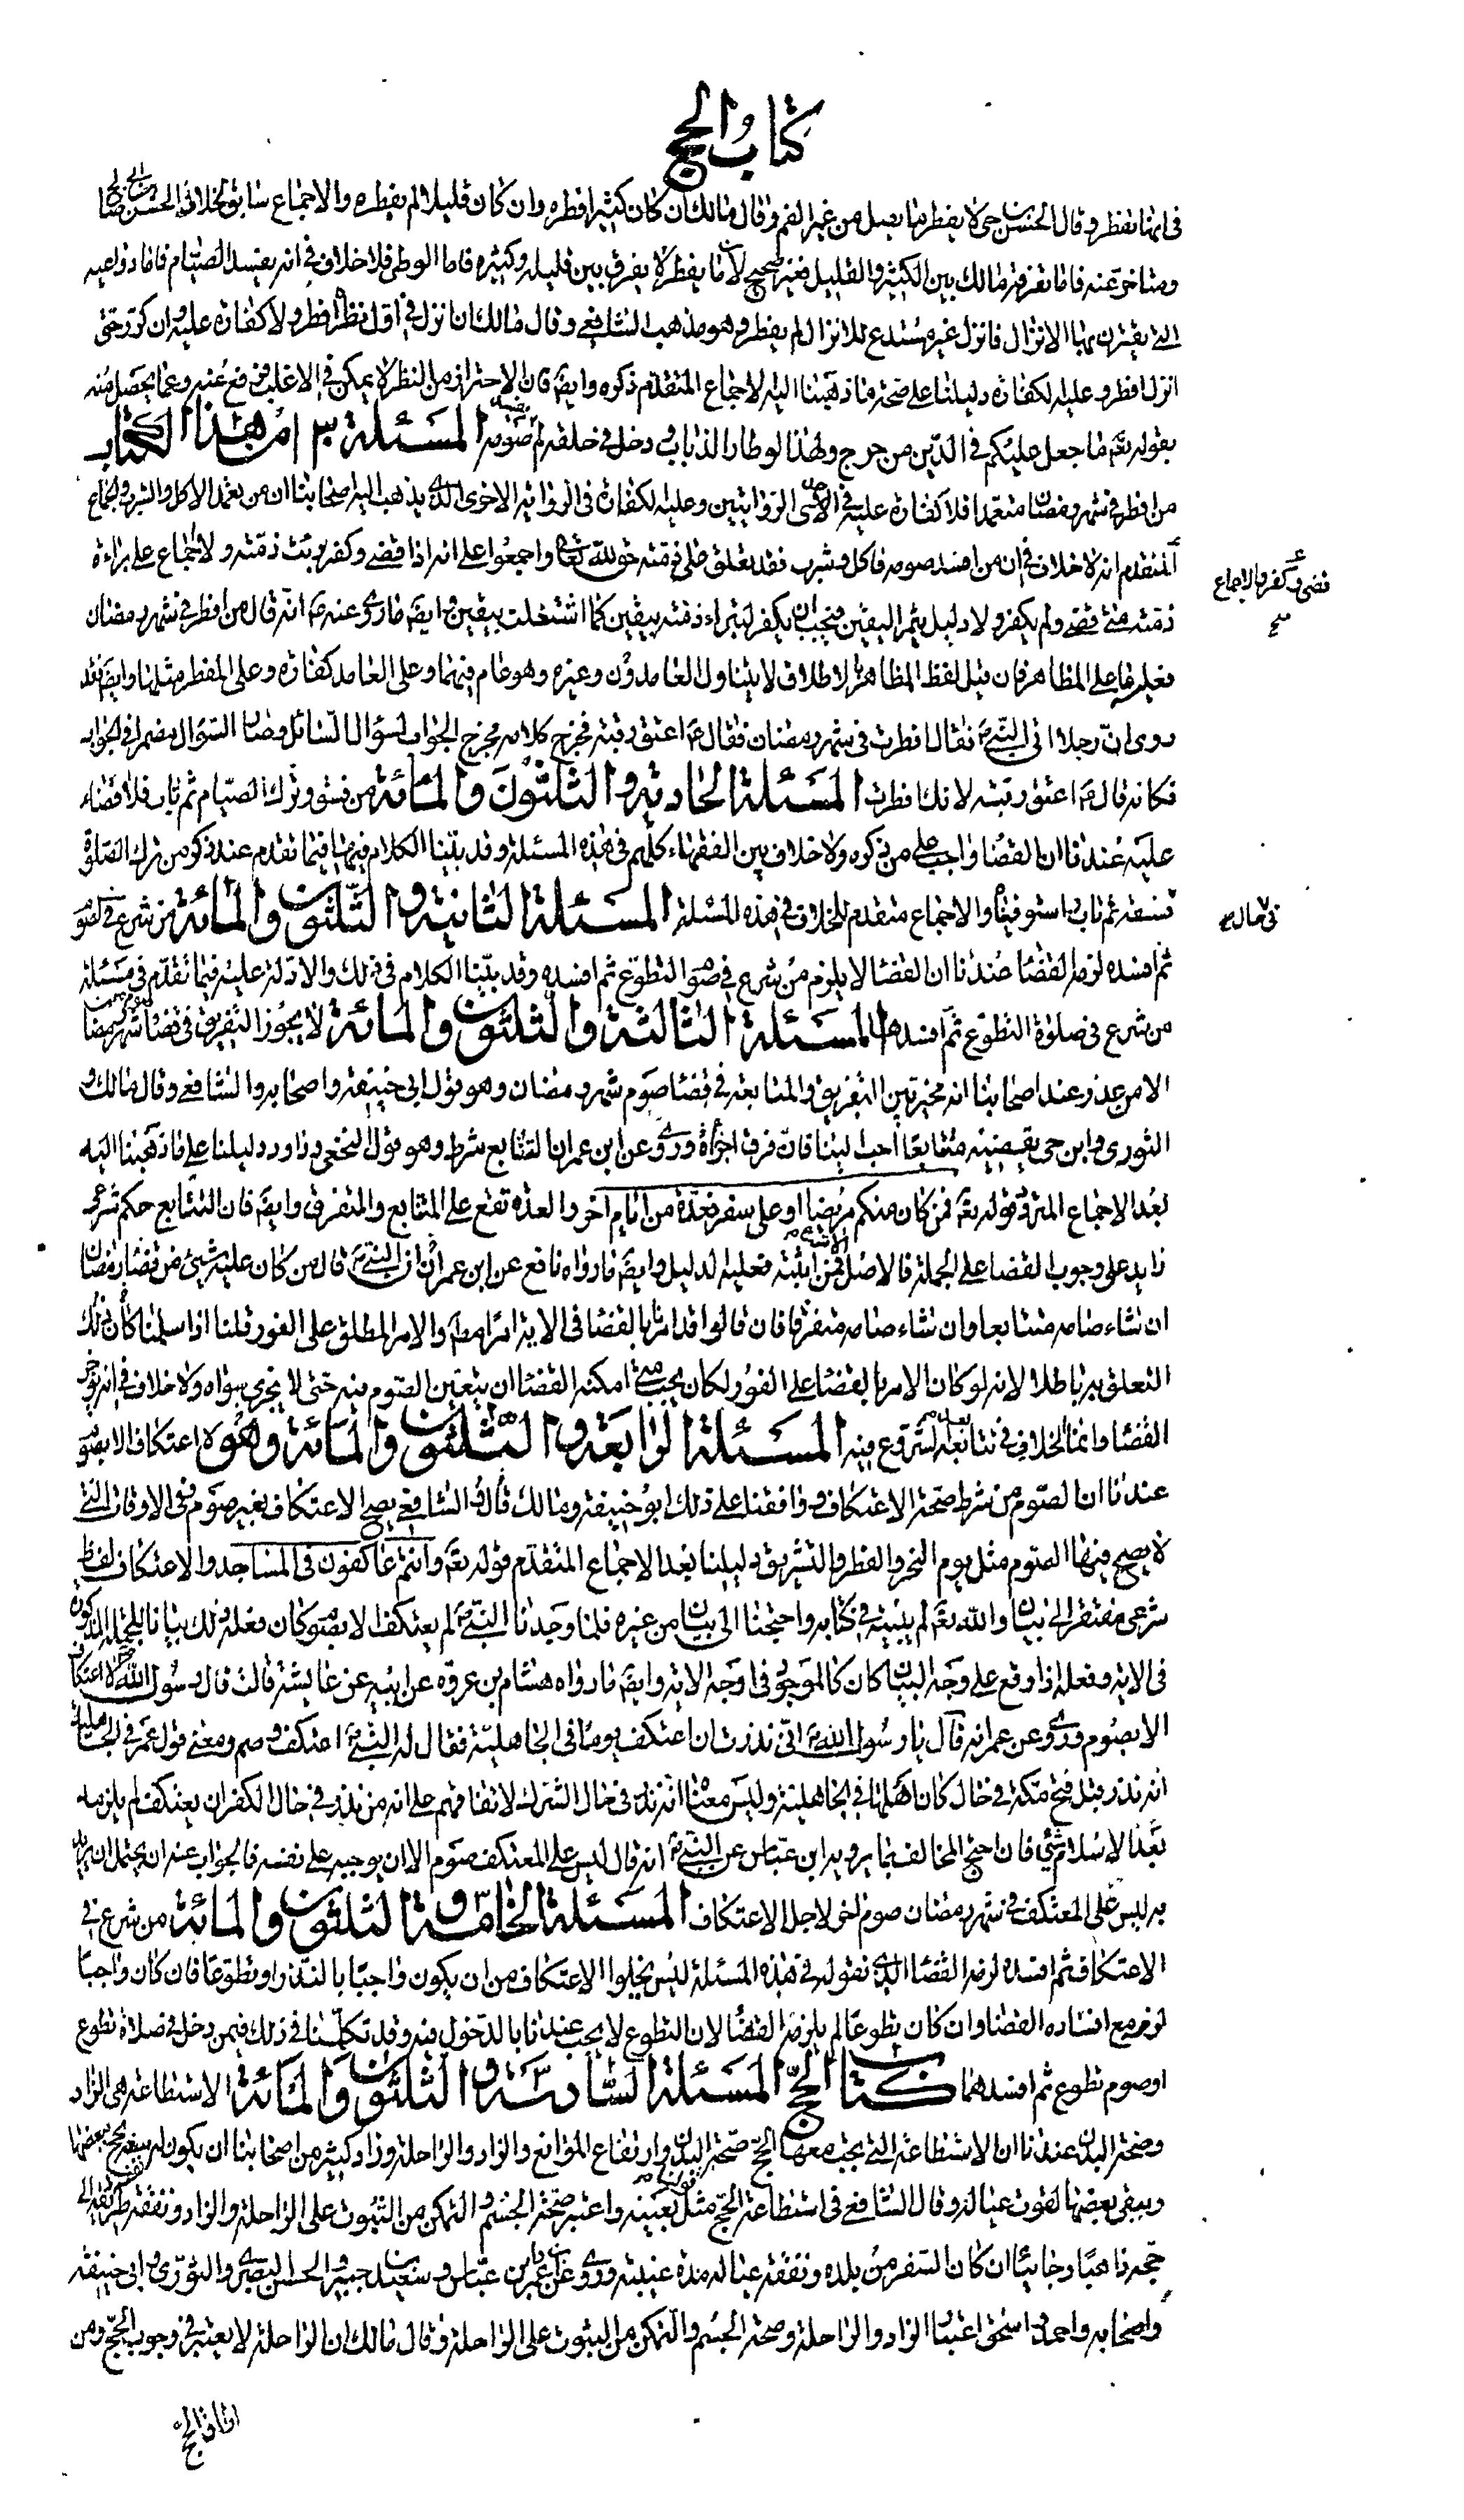 كتاب الحج
في انها تفطر وقال الحسن بن حي لا يفطر ما يصل من غير الفم وقال مالك ان كان كثيرا فطره وان كان قليلا لم يفطره والاجماع سابق لخلاف الحسن بن صالح
ومتاخر عنه فاما تفرقة مالك بين الكثير والقليل فغير صحيح لان ما يفطر لا يفرق بين قليله وكثيره فاما الوطى فلا خلاف في انه يفسد الصيام فاما دواعيه
التي يقترن بها الانزال فانزل غير مستدع للانزال لم يفطر وهو مذهب الشافعي وقال مالك ان انزل في اول نظرة افطر ولا كفارة عليه وان كرر حتى
انزل افطر وعليه الكفارة دليلنا على صحة ما ذهبنا اليه الاجماع المتقدم ذكره وايضا فان الاحتراز من النظر لا يمكن في الاغلب فرفع عنه وعما يحصل منه
بقوله تعا ما جعل عليكم في الدين من حرج ولهذا لو طار الذباب ودخل في حلقه لم يفسد صومه المسئلة ١٣٠ من هذا الكتاب
من افطر في شهر رمضان متعمدا فلا كفارة عليه في احدى الروايتين وعليه الكفارة في الرواية الاخرى الذي يذهب اليه اصحابنا ان من تعمد الاكل والشرب والجماع
المتقدم انه لا خلاف في ان من افسد صومه فاكل وشرب فقد تعلق على ذمته حق لله تعا واجمعوا على انه اذا قضى وكفر برئت ذمته ولا اجماع على براءة
قضى وكفر والاجماع
صح
ذمته متى قضى ولم يكفر ولا دليل يثمر اليقين فيجب ان يكفر لتبراء ذمته بيقين كما اشتغلت بيقين وايضا ما روي عنه ع انه قال من افطر في شهر رمضان
فعليه ما على المظاهر فان قيل لفظ المظاهر لاطلاق لا يتناول العامد دون وغيره وهو عام فيهما وعلى العامد كفارة وعلى المفطر مثلها وايضا فقد
روى ان رجلا اتى النبي ع فقال افطرت في شهر رمضان فقال ع اعتق رقبة فخرج كلامه مخرج الجواب لسؤال السائل وصار السؤال مضمرا في الجواب
فكانه قال ع اعتق رقبة لانك افطرت المسئلة الحادية والثلثون والمائة من فسق وترك الصيام ثم تاب فلا قضاء
عليه عندنا ان القضا واجب على من ذكره ولا خلاف بين الفقهاء كلهم في هذه المسئلة وقد بينا الكلام فيها فيما تقدم عند ذكر من ترك الصلوة
في حال
فسقه ثم تاب واستوفيناه والاجماع متقدم للخلاف في هذه المسئلة المسئلة الثانية والثلثون والمائة من شرع في صوم
ثم افسده لزمه القضا عندنا ان القضا لا يلزم من شرع في صوم التطوع ثم افسده وقد بينا الكلام في ذلك والادلة عليه فيما تقدم في مسئلة
من شرع في صلوة التطوع ثم افسدها المسئلة الثالثة والثلثون والمائة لا يجوز التفريق في قضا صوم شهر رمضان
الا من عذر عند اصحابنا انه مخير بين التفريق والمتابعة في قضا صوم شهر رمضان وهو قول ابي حنيفة واصحابه والشافعي وقال مالك و
الثوري وابن حي يقضيه متتابعا احب الينا فان فرق اجزاه وروي عن ابن عمر ان التتابع شرط وهو قول النخعي وداود دليلنا على ما ذهبنا اليه
بعد الاجماع المتردد قوله تعا فمن كان منكم مريضا او على سفر فعدة من ايام اخر والعدة تقع على المتتابع والمتفرق وايضا فان التتابع حكم شرعي
زايد على وجوب القضا على الجملة فالاصل الا تتابع فمن اثبته فعليه الدليل وايضا ما رواه نافع عن ابن عمر ان النبي ع قال من كان عليه شيئ من قضا رمضان
ان شاء صامه متتابعا وان شاء صامه متفرقا فان قالوا قد امرنا بالقضا في الاية امرا مطلقا والامر المطلق على الفور قلنا اذا سلمنا كان ذلك
التعلق به باطلا لانه لو كان الامر بالقضا على الفور لكان يجب متى امكنه القضا ان يتعين الصوم فيه حتى لا يجزي سواه ولا خلاف في انه يؤخر
القضا وانما الخلاف في تتابعه بعد الشروع فيه المسئلة الرابعة والثلثون والمائة وهو لا اعتكاف الا بصوم
عندنا ان الصوم من شرط صحة الاعتكاف ووافقنا على ذلك ابو حنيفة ومالك قال الشافعي يصح الاعتكاف بغير صوم وفي الاوقات التي
لا يصح فيها الصوم مثل يوم النحر والفطر والتشريق دليلنا بعد الاجماع المتقدم قوله تعا وانتم عاكفون في المساجد والاعتكاف لفظ
شرعي مفتقر الى بيان والله تعا لم يبينه في كتابه واحتجنا الى بيان من غيره فلما وجدنا النبي ع لم يعتكف الا بصوم كان فعله ذلك بيانا للجملة المذكورة
في الاية وفعله اذا وقع على وجه البيان كان كالموجود في وجه الاية وايضا ما رواه هشام بن عروة عن ابيه عن عايشة قالت قال رسول الله ع لا اعتكاف
الا بصوم وروي عن عمر انه قال يا رسول الله ع اني نذرت ان اعتكف يوما في الجاهلية فقال له النبي ع اعتكف وصم ومعنى قول عمر في الجاهلية
انه نذر قبل فتح مكة في حال كان اهلها في الجاهلية وليس معناه انه نذر في حال الشرك لاتفاقهم على انه من نذر في حال الكفر ان يعتكف لم يلزمه
بعد الاسلام شئ فان احتج المخالف بما يرويه ابن عباس عن النبي ع انه قال ليس على المعتكف صوم الا ان يوجبه على نفسه فالجواب عنه ان يحتمل ان يريد
به ليس على المعتكف في شهر رمضان صوم اخر لاجل الاعتكاف المسئلة الخامسة والثلثون والمائة من شرع في
الاعتكاف ثم افسده لزمه القضا الذي نقوله في هذه المسئلة ليس يخلوا الاعتكاف من ان يكون واجبا بالنذر او تطوعا فان كان واجبا
لزم مع افساده القضا وان كان تطوعا لم يلزمه القضا لان التطوع لا يجب عندنا بالدخول فيه وقد تكلمنا في ذلك فيمن دخل في صلاة تطوع
او صوم تطوع ثم افسدهما كتاب الحج المسئلة السادسة والثلثون والمائة الاستطاعة هي الزاد
وصحة البدن عندنا ان الاستطاعة التي يجب معها الحج صحة البدن وارتفاع الموانع والزاد والراحلة وزاد كثير من اصحابنا ان يكون له سعة يحج ببعضها
ويبقى بعضها لقوت عياله وقال الشافعي في استطاعة الحج مثل قولنا بعينه واعتبر صحة الجسم والتمكن من الثبوت على الراحلة والزاد ونفقة طريقه الى
حجه ذاهبا وجائيا ان كان السفر من بلده ونفقة عياله مدة غيبته وروي عن عمر وابن عباس وسعيد بن جبير والحسن البصري والثوري وابي حنيفة
واصحابه واحمد واسحق اعتبار الزاد والراحلة وصحة الجسم والتمكن من الثبوت على الراحلة وقال مالك ان الراحلة لا يعتبر في وجوب الحج ومن
الحج